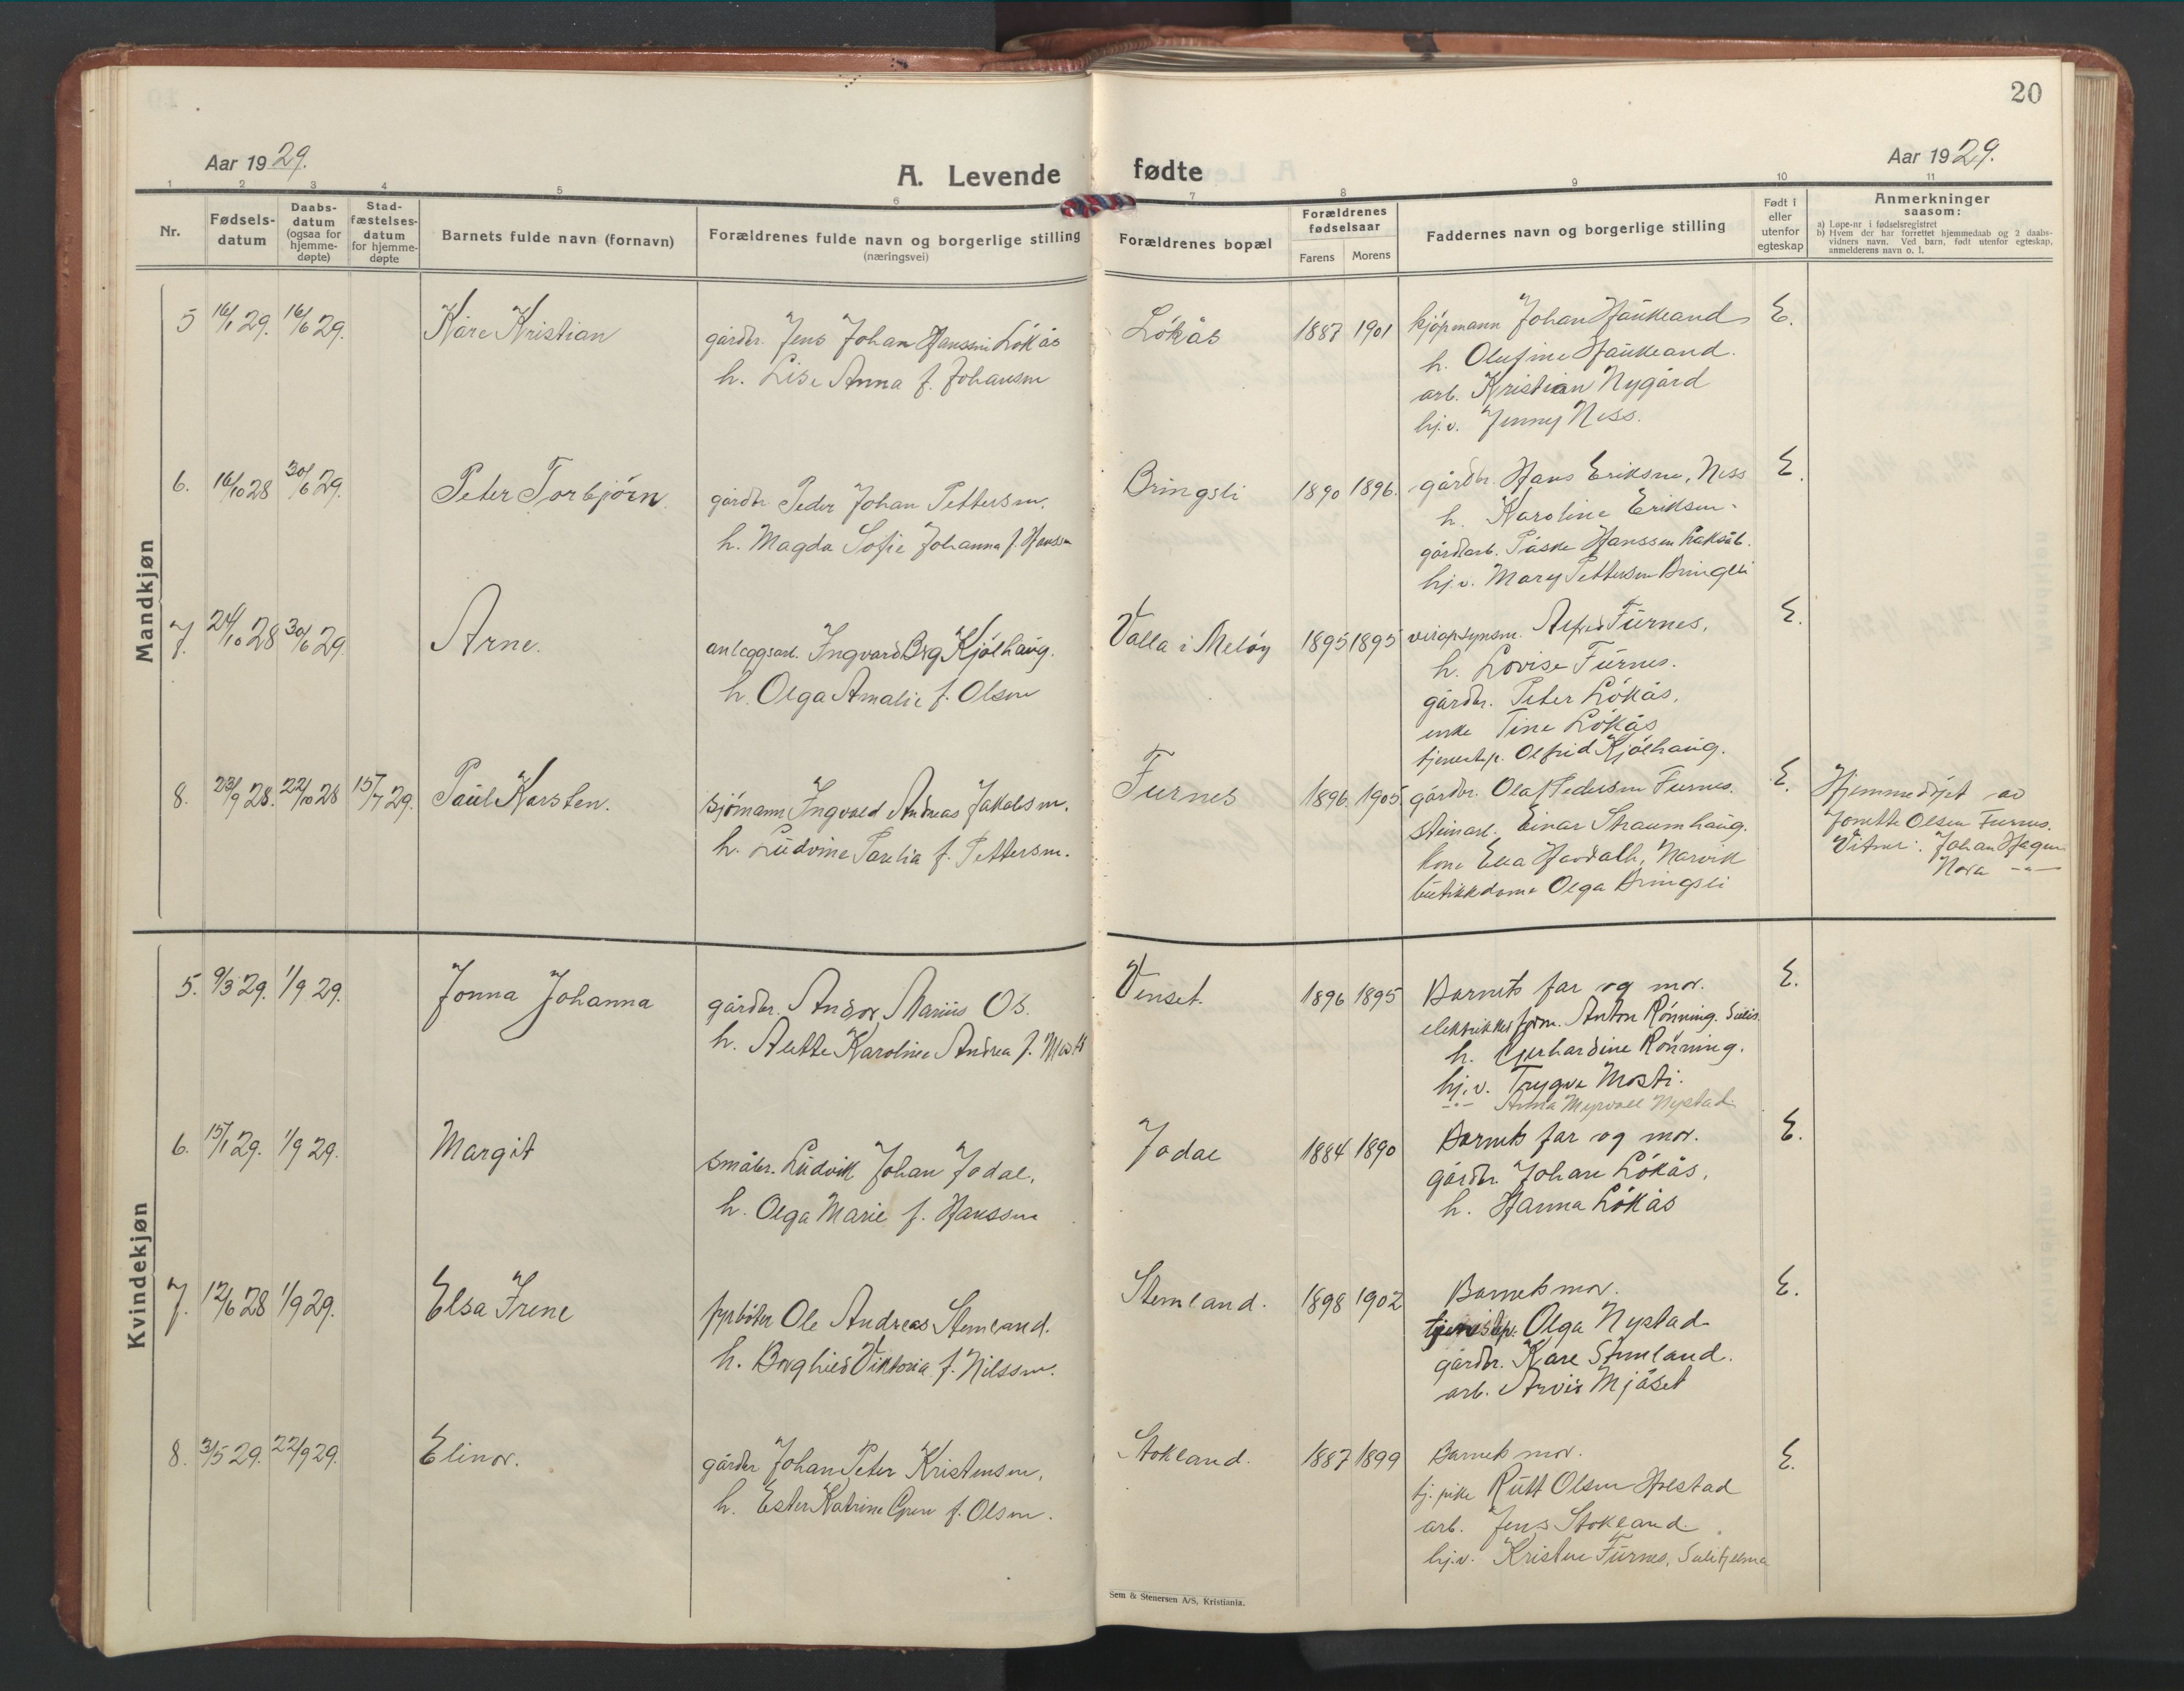 20
Aar 1929.
A. Levende fødte
Aar 1929.
1 2 3 4 5 6 7 8 9 10 11
Nr.
Fødsels-
datum
Daabs-
datum
(ogsaa for
hjemme-
døpte)
Stad-
fæstelses-
datum
for hjemme-
døpte
Barnets fulde navn (fornavn)
Forældrenes fulde navn og borgerlige stilling
(næringsvei)
Forældrenes bopæl
Forældrenes
fødselsaar
Farens Morens
Faddernes navn og borgerlige stilling
Født i
eller
utenfor
egteskap
Anmerkninger
saasom:
a) Løpe-nr i fødselsregistret
b) Hvem der har forrettet hjemmedaab og 2 daabs-
vidners navn. Ved barn, født utenfor egteskap,
anmelderens navn o. l.
Mandkjøn
5 16/1 29. 16/6 29. Kåre Kristian
gårdbr. Jens Johan Hanssen Løkås
h. Lise Anna f. Johansen
Løkås 1887 1901
kjøpmann Johan Haukeland E.
h. Olufine Haukeland.
arb. Kristian Nygård
hj.v. Jenny Ness.
6. 16/10 28 30/6 29. Peter Torbjørn
gårdbr Peder Johan Pettersen.
h. Magda Sofie Johanna f. Hanssen
Bringsli 1890 1896.
gårdbr. Hans Eriksen, Ness E.
h. Karoline Eriksen.
gårdarb. Påske Hanssen
hj.v. Mary Pettersen Bringsli
7. 24/10 28 30/6 29. Arne.
anleggsarb. Ingvard Berg Kjølhaug.
h. Olga Amalie f. Olsen
Valla i Meløy 1895 1895
veiopsynsm. Alfred Furnes. E.
h. Lovise Furnes.
gårdbr. Peter Løkås.
enke Tine Løkås
tjenestep. Olfrid Kjølhaug.
8. 23/9 28. 22/10 28 15/7 29. Paul Karsten.
sjømann Ingvald Andreas Jakobsen.
h. Ludvine Parelia f. Pettersen.
Furnes 1896. 1905
gårdbr. Olaf Pedersen Furnes. E.
steinarb. Einar Straumhaug.
kone Ella Haadalh, Narvik
butikkdame Olga Bringsli
Hjemmedøpt av
Jonette Olsen Furnes.
Vitner: Johan Hagen
Nora -"-
Kvindekjøn
5. 9/3 29. 1/9 29. Jonna Johanna
gårdbr. Andor Marius Os.
h. Alette Karoline Andrea f. Mosti
Venset. 1896 1895
Barnets far og mor. E.
elektrikkerform. Anton Rønning. Sulis.
h. Gerhardine Rønning.
hj.v. Trygve Mosti.
-"- Anna Myrvall Nystad
6. 15/1 29. 1/9 29. Margit
småbr. Ludvik Johan Jodal.
h. Olga Marie f. Hanssen
Jodal 1884 1890
Barnets far og mor. E.
gårdbr. Johan Løkås.
h. Hanna Løkås
7. 12/6 28 1/9 29. Elsa Irene
fyrbøter Ole Andreas Stemland.
h. Borghild Viktoria f. Nilssen.
Stemland. 1898 1902
Barnets mor. E.
tjenestep. Olga Nystad
gårdbr. Kåre Stemland.
arb. Arvid Mjåset
8. 3/5 29. 22/9 29. Elinor.
gårdbr Johan Peter Kristensen.
h. Ester Katrine f. Olsen.
Stokland. 1887 1899
Barnets mor. E.
tj. pike Rutt Olsen Holstad
arb. Jens Stokland
hj.v. Kristine Furnes, Sulitjelma
Sem & Stenersen A/S, Kristiania.